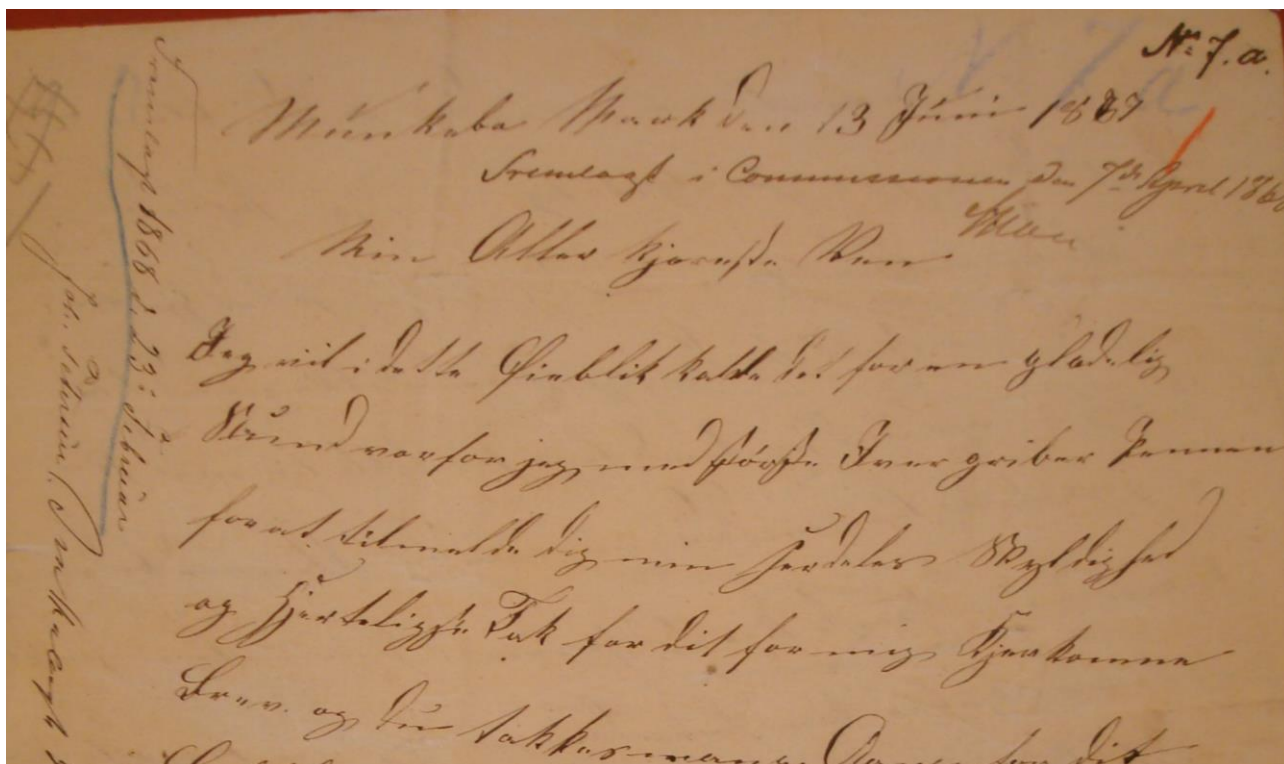 No 7. a.
Munkebo Mark den 13 Juni 1867
Fremlagt i Commissionen den 7de April 186
Min Aller Kjæreste Ven
Jeg vil i dette Øieblik kalde det for en gladelig
Stund vorfor jeg med største Iver griber Pennen
for at tilmelde dig min særdeles Skyldighed
og Hjerteligste Tak for dit for mig Kjærkomne
Brev. og du takkes mange Gange for dit
Fremlagt 1868 d. 23de Februar